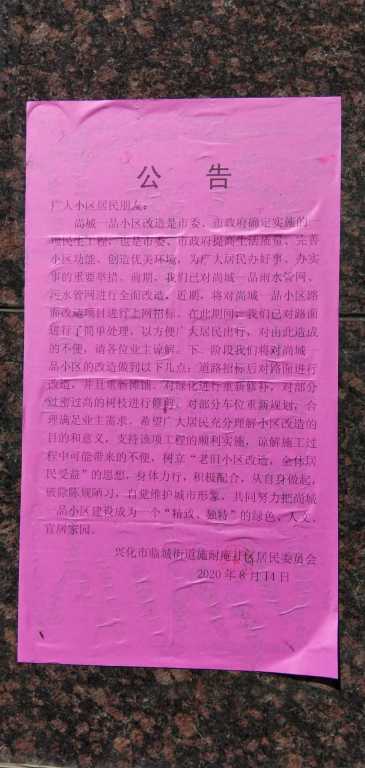 公 告
广大小区居民朋友：
尚城一品小区改造是市委、市政府确定实施的一
理民生工程，也是市委、市政府提高生活质量、完善
小区功能、创造优美环境，为广大居民办好事、办实
事的重要举措。前期，我们已对尚城一品雨水管网、
污水管网进行全面改造，近期，将对尚城一品小区路
面改造项目进行上网招标，在此期间，我们已对路面
进行了简单处理，以方便广大居民出行，对由此造成
的不便，请各位业主谅解。下一阶段我们将对尚城一
品小区的改造做到以下几点：道路招标后对路面进行
改造，并且重新摊铺，对绿化进行重新修补，对部分
过密过高的树枝进行修剪，对部分车位重新规划，合
理满足业主需求。希望广大居民充分理解小区改造的
目的和意义，支持该项工程的顺利实施，谅解施工过
程中可能带来的不便，树立“老旧小区改造，全体居
民受益”的思想，身体力行，积极配合，从自身做起，
破除陈规陋习，自觉维护城市形象，共同努力把尚城
一品小区建设成为一个“精致、独特”的绿色、人文、
宜居家园。
兴化市临城街道施耐庵社区居民委员会
2020 年 8 月 14 日